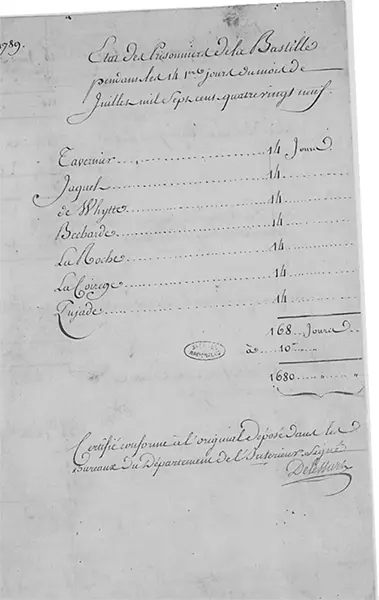 1789.
Etat des Prisonniers de la Bastille
pendant les 14 1ers jours du mois de
Juillet mil sept cens quatre vingt neuf.
Tavernier 14 Jours
Jaquet 14
de Whytte 14
Bechade 14
La Roche 14
La Corrège 14
Pujade 14
168 Jours
à 10
1680
ARCHIVES
NATIONALES
Certifié conforme à l'original déposé dans les
bureaux du Département de l'Intérieur. Signé
Delessart